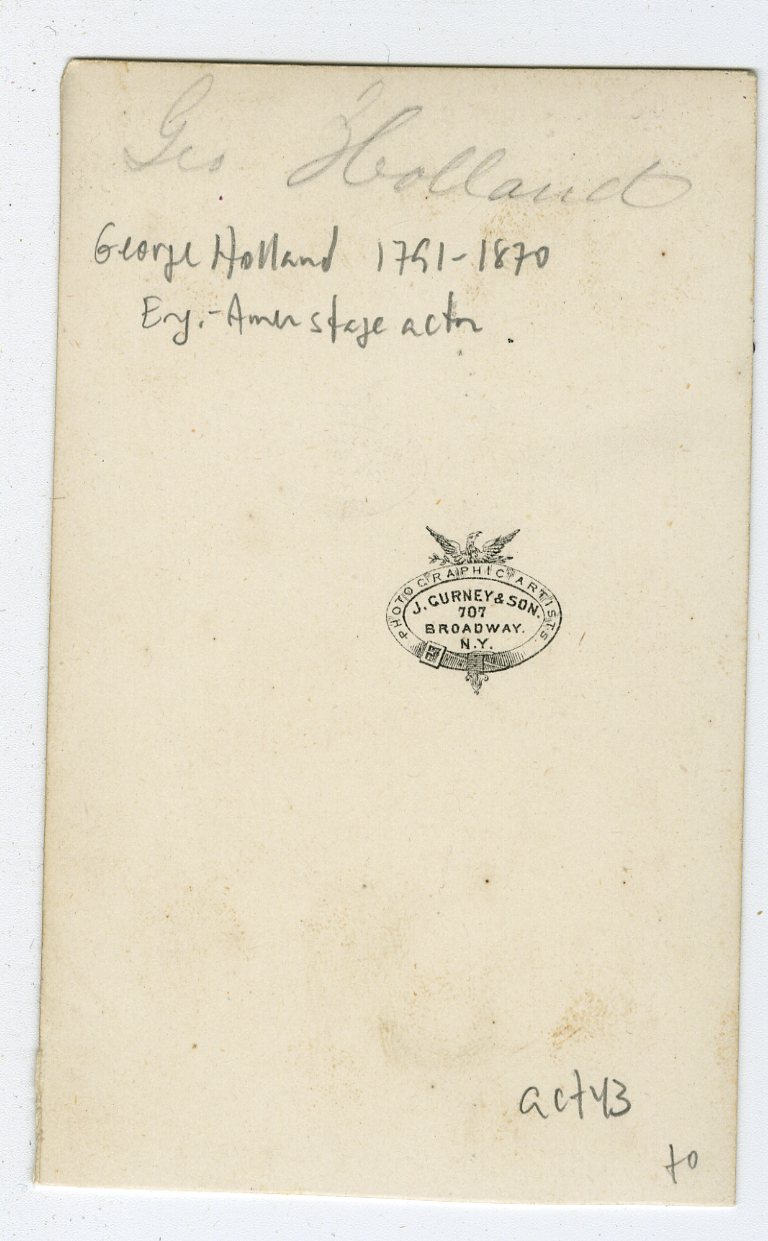 Geo Holland
George Holland 1791-1870
Eng.-Amer stage actor.
PHOTOGRAPHIC ARTISTS.
J. GURNEY & SON.
707
BROADWAY.
N.Y.
act43